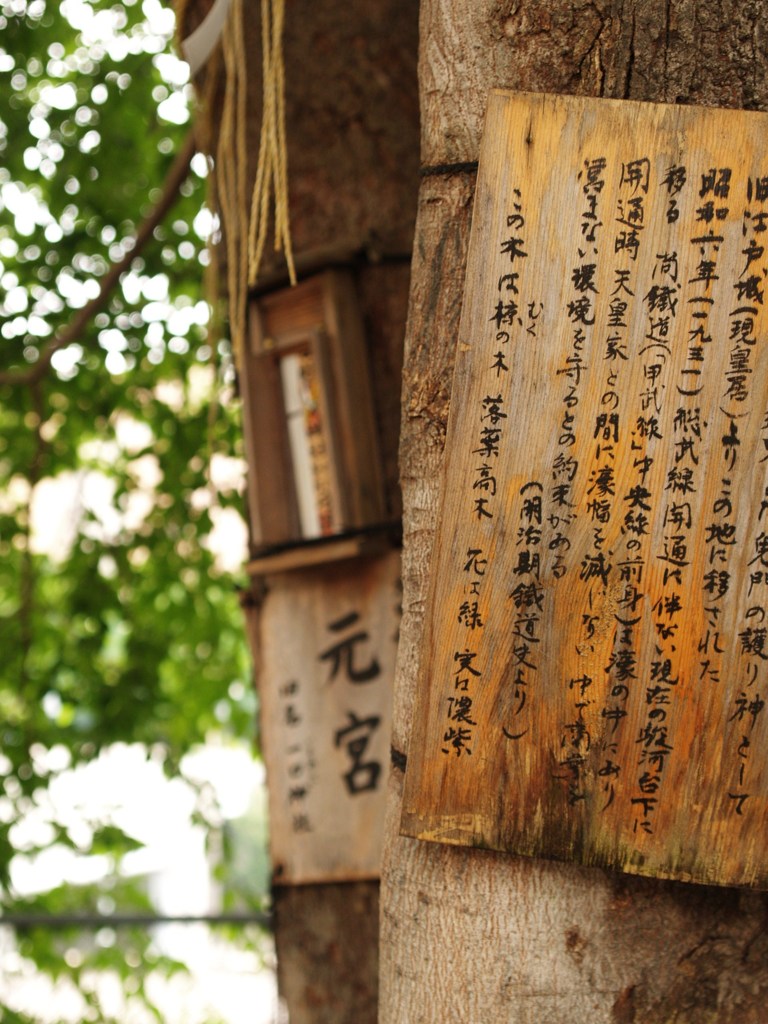 旧江戸城(現皇居)よりこの地に移された
鬼門の護り神として
昭和六年(一九三一)総武線開通に伴ない現在の駿河台下に
移る 尚鐵道(「甲武線」中央線の前身)は濠の中にあり
開通時天皇家との間に濠幅を減じない 中で
営まない環境を守るとの約束がある
(明治期鐵道史より)
この木は椋の木 落葉高木 花は緑 実は濃紫
むく
元宮
旧名